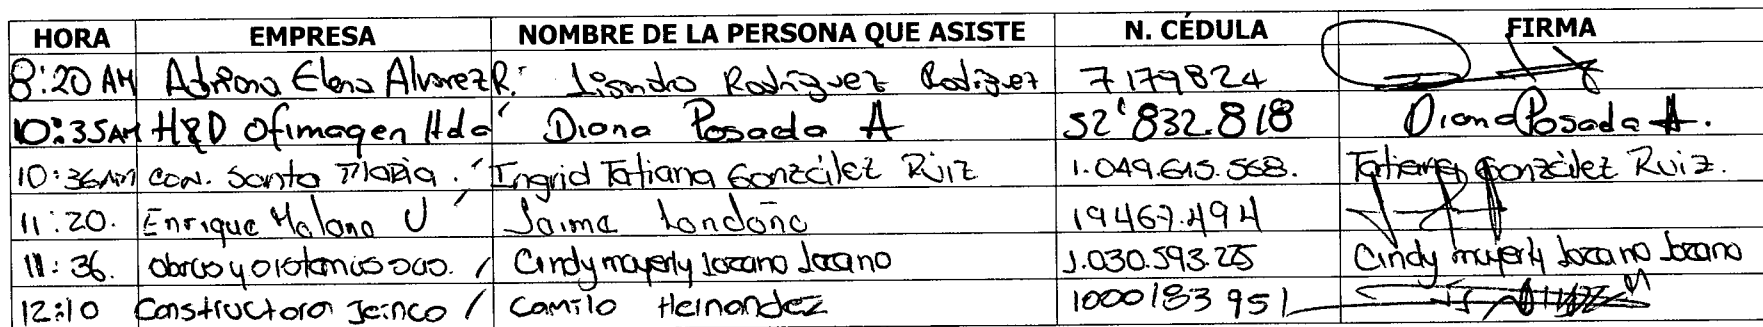 HORA EMPRESA NOMBRE DE LA PERSONA QUE ASISTE N. CÉDULA FIRMA
8:20 AM Adriana Elena Alvarez R. Lisandro Rodriguez Rodriguez 7179824
10:35AM H&D Ofimagen ltda Diana Posada A 52'832.818 Diana Posada A.
10:36AM con. Santa Maria. Ingrid Tatiana González Ruiz 1.049.615.568. Tatiana González Ruiz.
11:20. Enrique Malano U Jaime Londoño 19467.494
11:36. obras y Cindy mayerly lozano lozano 1.030.593.25 Cindy mayerly lozano lozano
12:10 Constructora Jeinco Camilo Hernandez 1000183951